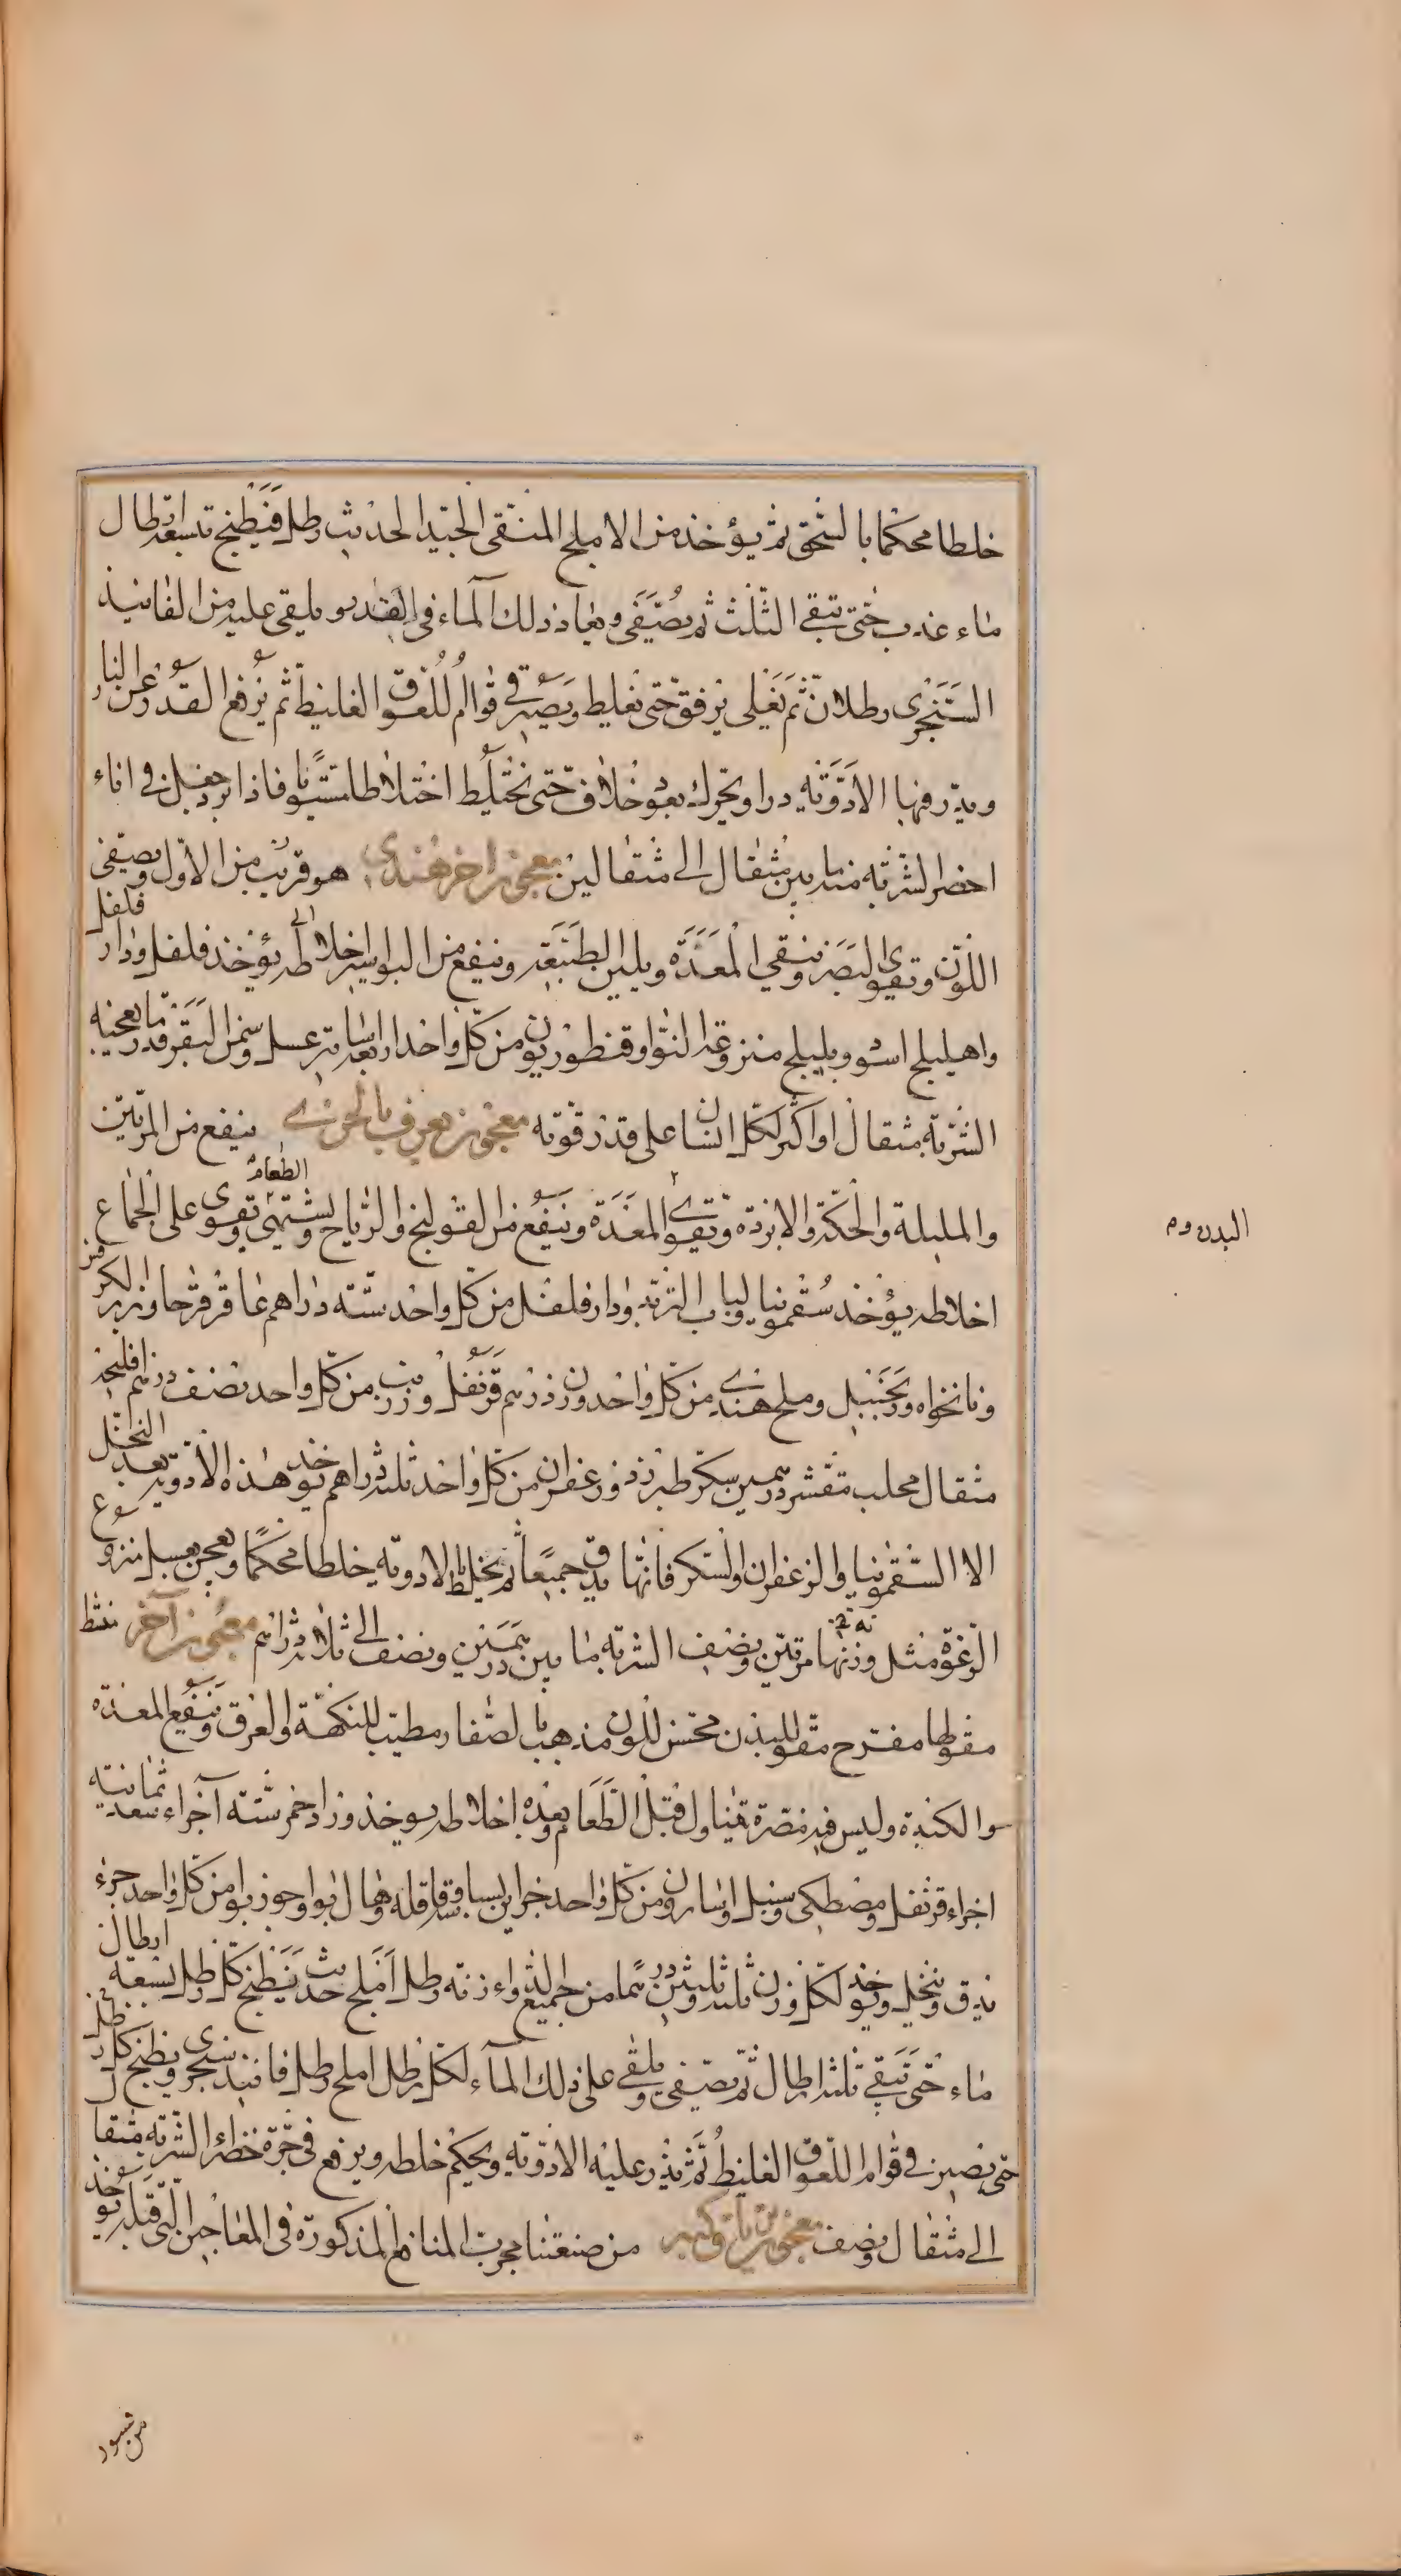 خلطا محكما بالسحق ثم يؤخذ من الاملج المنقى الجيد الحديث رطل فيطبخ بتسعة ارطال
ماء عذب حتى تبقى الثلث ثم يصفى ويعاد ذلك الماء فى القدر ويلقى عليه من الفانيذ
السنجرى رطلان ثم يغلى برفق حتى يغلظ ويصير فى قوام اللعوق الغليظ ثم يرفع القدر عن النار
ويذر فيها الادوية ذرا ويحرك بعود خلاف حتى تختلط اختلاطا مستويا فاذا برد جعل فى اناء
اخضر الشربة منه ما بين مثقال الى مثقالين معجون اخر هندى هو قريب من الاول ويصفى
اللون ويقوى البصر وينقى المعدة ويلين الطبيعة وينفع من البواسير اخلاطه يؤخذ فلفل ودار فلفل
واهليلج اسود وبليلج منزوعة النوا وقنطوريون من كل واحد اربعة اساتير عسل وسمن البقر قدر ما يعجنه
الشربة مثقال او اكثر لكل انسان على قدر قوته معجون يعرف بالجوزى ينفع من المرتين
والمليلة والحكة والابردة ويقوى المعدة وينفع من القولنج والرياح ويشتهى الطعام ويقوى على الجماع
اخلاطه يؤخذ سقمونيا ولباب التربد ودار فلفل من كل واحد ستة دراهم عاقرقرحا وبزر الكرفس
ونانخواه وزنجبيل وملح هندى من كل واحد وزن درهم قرنفل وزرنب من كل واحد نصف درهم افلنجة
مثقال محلب مقشر درهمين سكر طبرزد وزعفران من كل واحد ثلثة دراهم يؤخذ هذه الادوية بعد النخل
الا السقمونيا والزعفران والسكر فانها يدق جميعا ثم يخلط بالادوية خلطا محكما ويعجن بعسل منزوع
الرغوة مثل وزنها مرتين ونصف الشربة ما بين درهمين ونصف الى ثلاثة دراهم معجون آخر منشط
مقو مفرح مقو للبدن محسن للون مذهب بالصفار مطيب للنكهة والعرق وينفع المعدة
والكبد وليس فيه مضرة يتناول قبل الطعام وبعده اخلاطه يوخذ ورد احمر ستة آجزاء سعد ثمانية
اجزاء قرنفل ومصطكى وسنبل واسارون من كل واحد جزاين بسباسة وقاقله وهال بوا وجوز بوا من كل واحد جزء
يدق وينخل ويؤخذ لكل وزن ثلثة وثلثين درهما من جميع الدواء زنة رطل املج حديث يطبخ كل رطل بتسعة ارطال
ماء حتى تبقى ثلثة ارطال ثم يصفى ويلقى على ذلك المآء لكل رطل املج رطل فانيذ سنجرى ويطبخ كل رطل
حتى يصير فى قوام اللعوق الغليظ ثم يذر عليه الادوية ويحكم خلطه ويرفع فى جرة خضراء الشربة مثقال
الى مثقال ونصف معجون من صنعتنا مجرب المنافع المذكورة فى المعاجين التى قبله يؤخذ
البدن وم